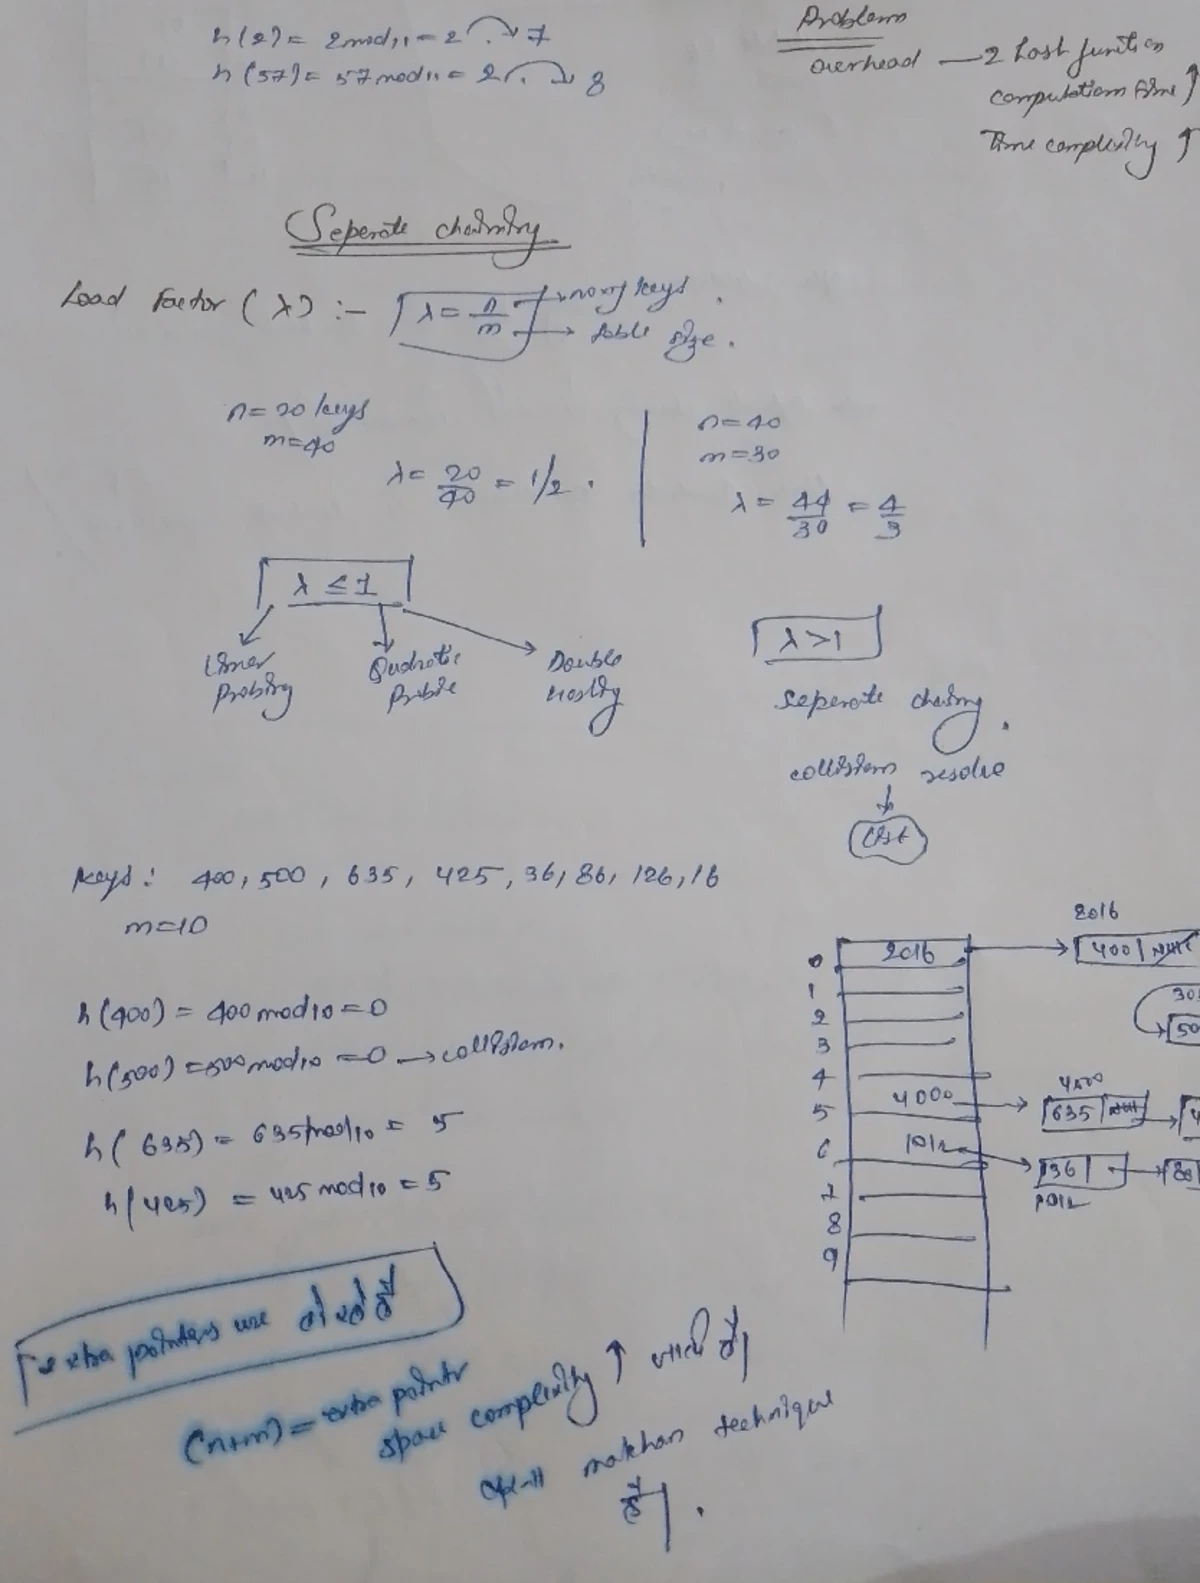 h(2) = 2mod11 = 2 → 7
h(57) = 57mod11 = 2 → 8
Problem
overhead — 2 hash function
computation time ↑
Time complexity ↑
Seperate chaining
Load Factor (λ) :- λ = n/m → no of keys
→ table size.
n = 20 keys
m = 40
λ = 20/40 = 1/2.
n = 40
m = 30
λ = 44/30 = 4/3
λ ≤ 1
Linear Probing
Quadratic Probing
Double Hashing
λ > 1
Seperate chaining.
collision resolve
↓
List
keys: 400, 500, 635, 425, 36, 86, 126, 16
m=10
h(400) = 400 mod10 = 0
h(500) = 500 mod10 = 0 → collision.
h(635) = 635 mod10 = 5
h(425) = 425 mod10 = 5
2016
0 2016 → 400 | Null
1
30
2
50
3
4
4500
5 4000 → 635 | Null →
6 1012 → 36 | → 86
1012
7
8
9
extra pointers use हो रहे हैं
(n+m) = extra pointer
space complexity ↑ जाती है।
makhan technique
है।